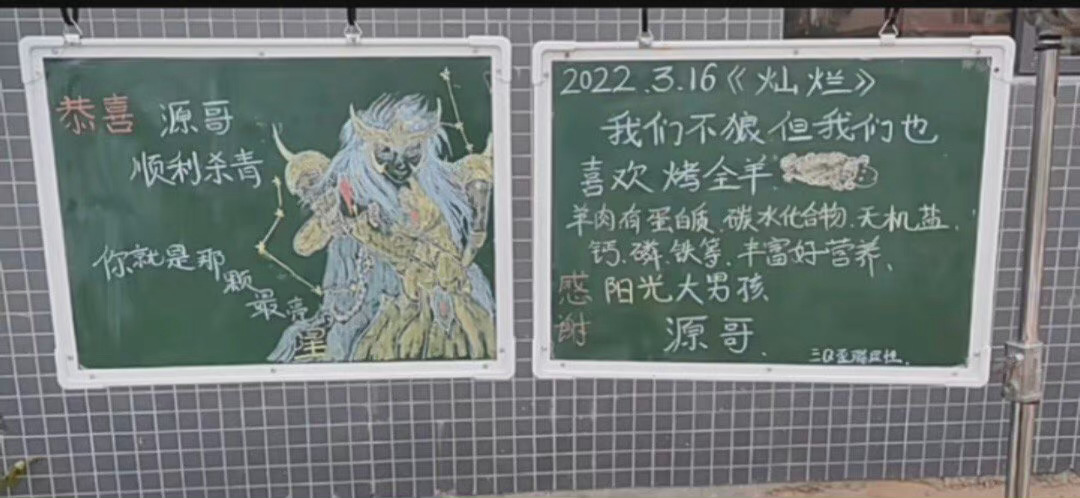 恭喜 源哥
顺利杀青
你就是那
颗
最亮
星
2022.3.16《灿烂》
我们不狼但我们也
喜欢烤全羊.
羊肉有蛋白质.碳水化合物.无机盐.
钙.磷.铁等.丰富好营养、
感谢 阳光大男孩
源哥.